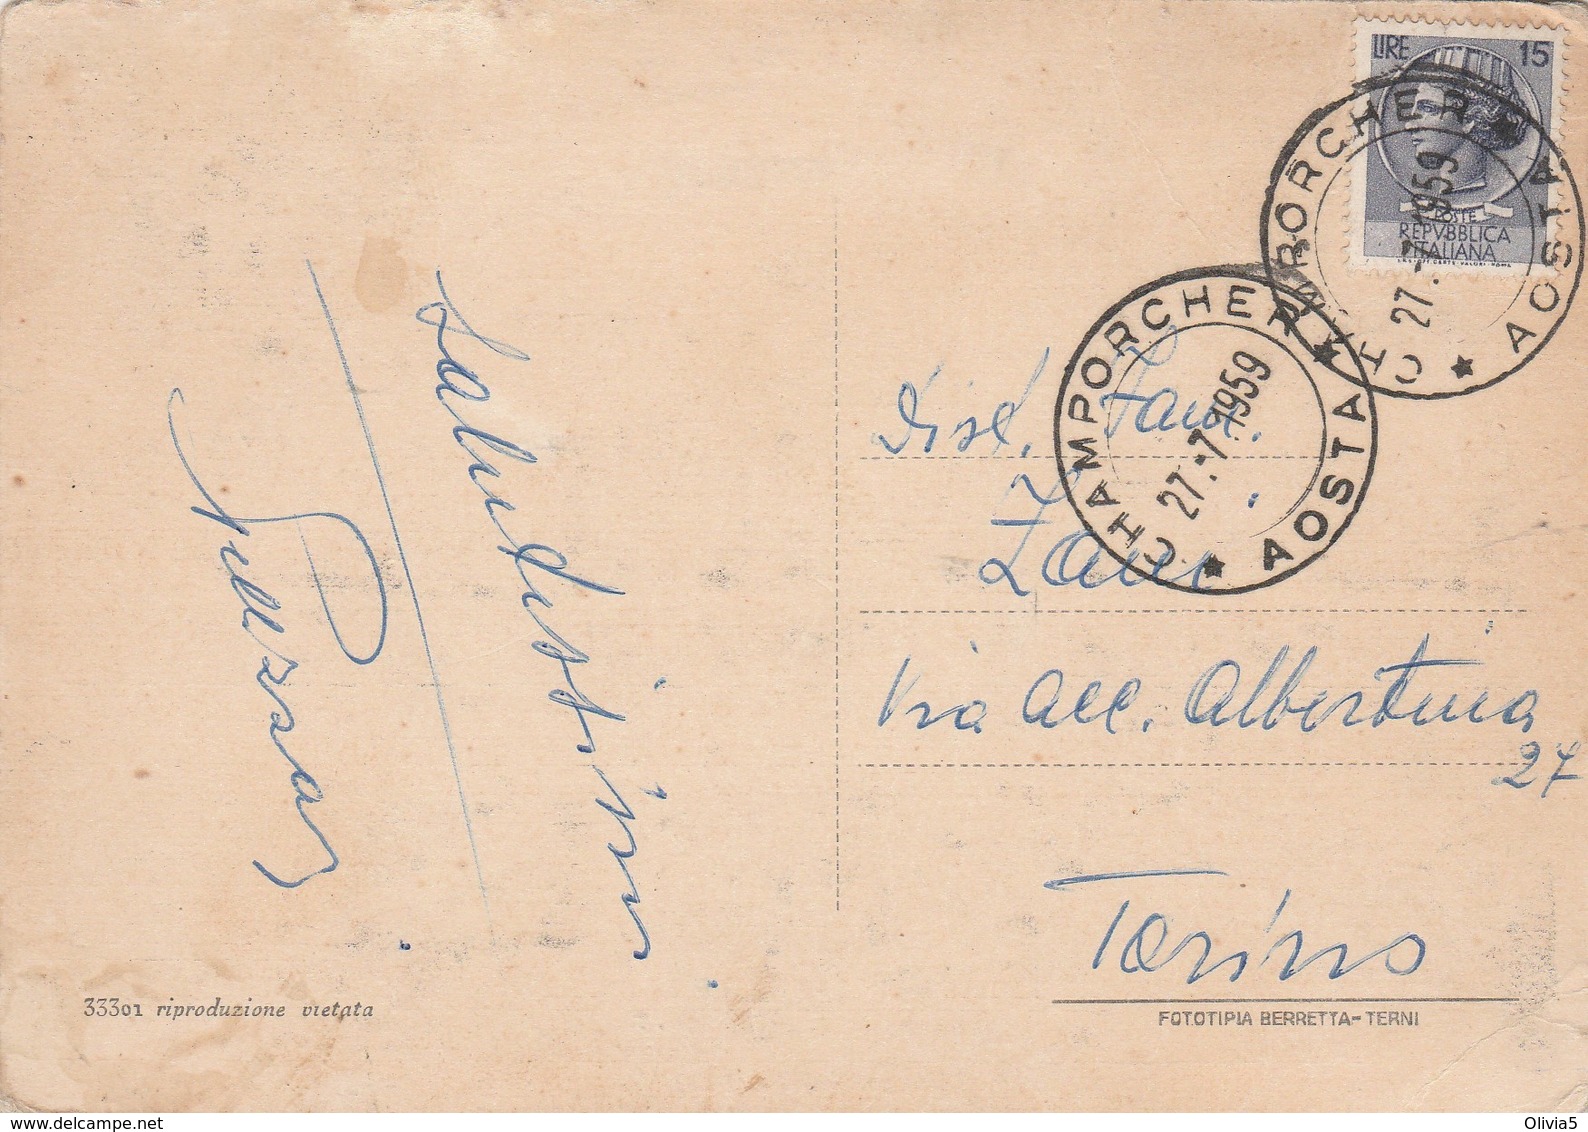 LIRE 15
POSTE
REPVBBLICA
ITALIANA
CHAMPORCHER
27.-7.1959
AOSTA
CHAMPORCHER
27.-7.1959
AOSTA
Dist. Fam.
Zani
Via Acc. Albertina
27
Torino
Salutissimi
33301 riproduzione vietata
FOTOTIPIA BERRETTA-TERNI
www.delcampe.net
Olivia5